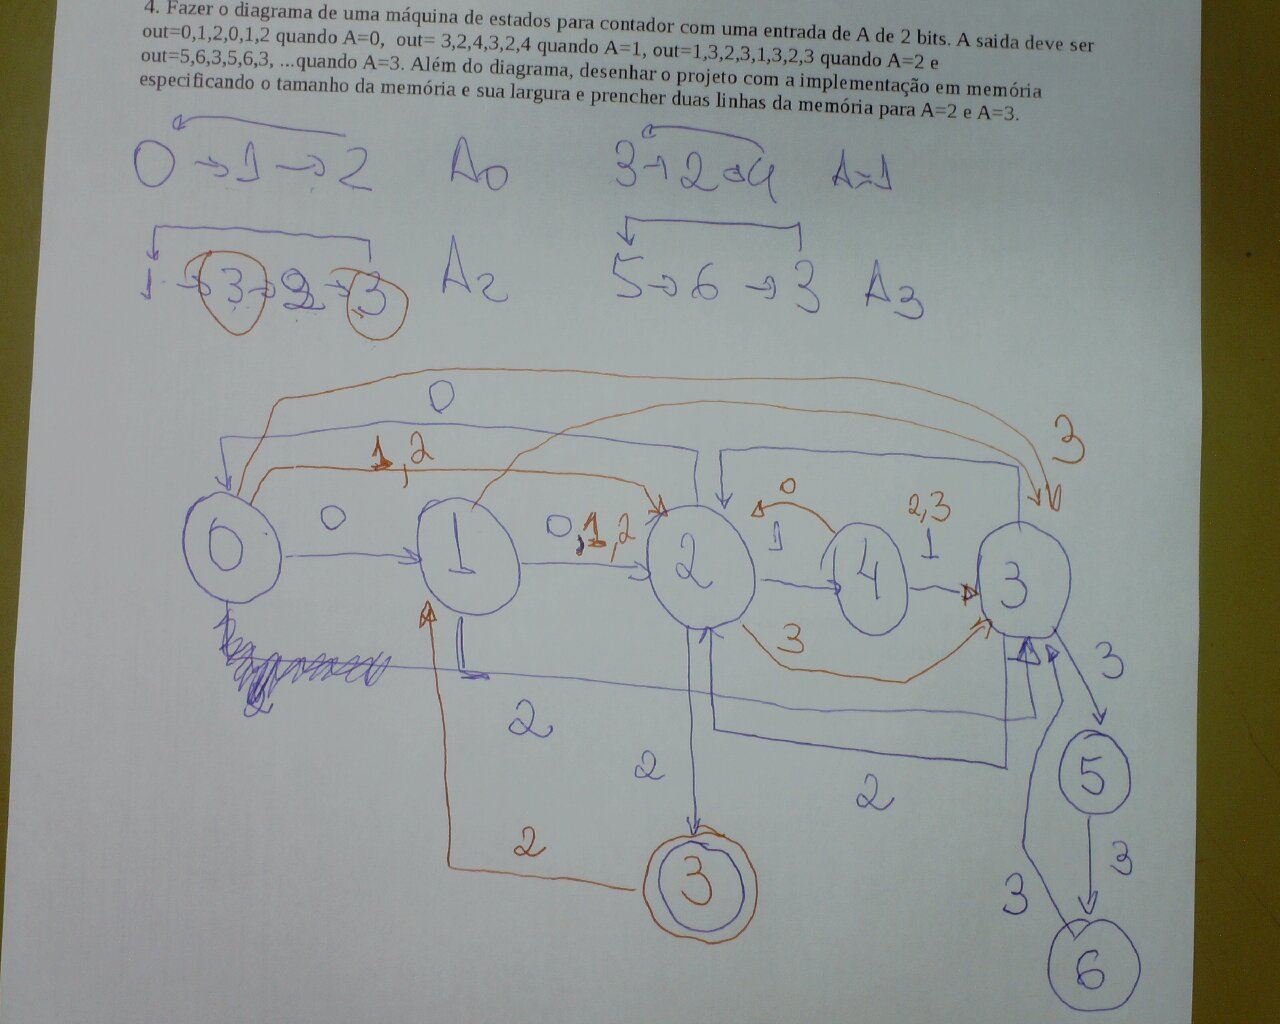 4. Fazer o diagrama de uma máquina de estados para contador com uma entrada de A de 2 bits. A saida deve ser
out=0,1,2,0,1,2 quando A=0, out= 3,2,4,3,2,4 quando A=1, out=1,3,2,3,1,3,2,3 quando A=2 e
out=5,6,3,5,6,3, ...quando A=3. Além do diagrama, desenhar o projeto com a implementação em memória
especificando o tamanho da memória e sua largura e prencher duas linhas da memória para A=2 e A=3.
0 → 1 → 2 A0 3 → 2 → 4 A=1
1 → 3 → 2 → 3 A2 5 → 6 → 3 A3
0
1,2 3
0 0,1,2 1 0 2,3
1
0 1 2 4 3
3 3
1
2 2 2 5
2 3 3 3
6